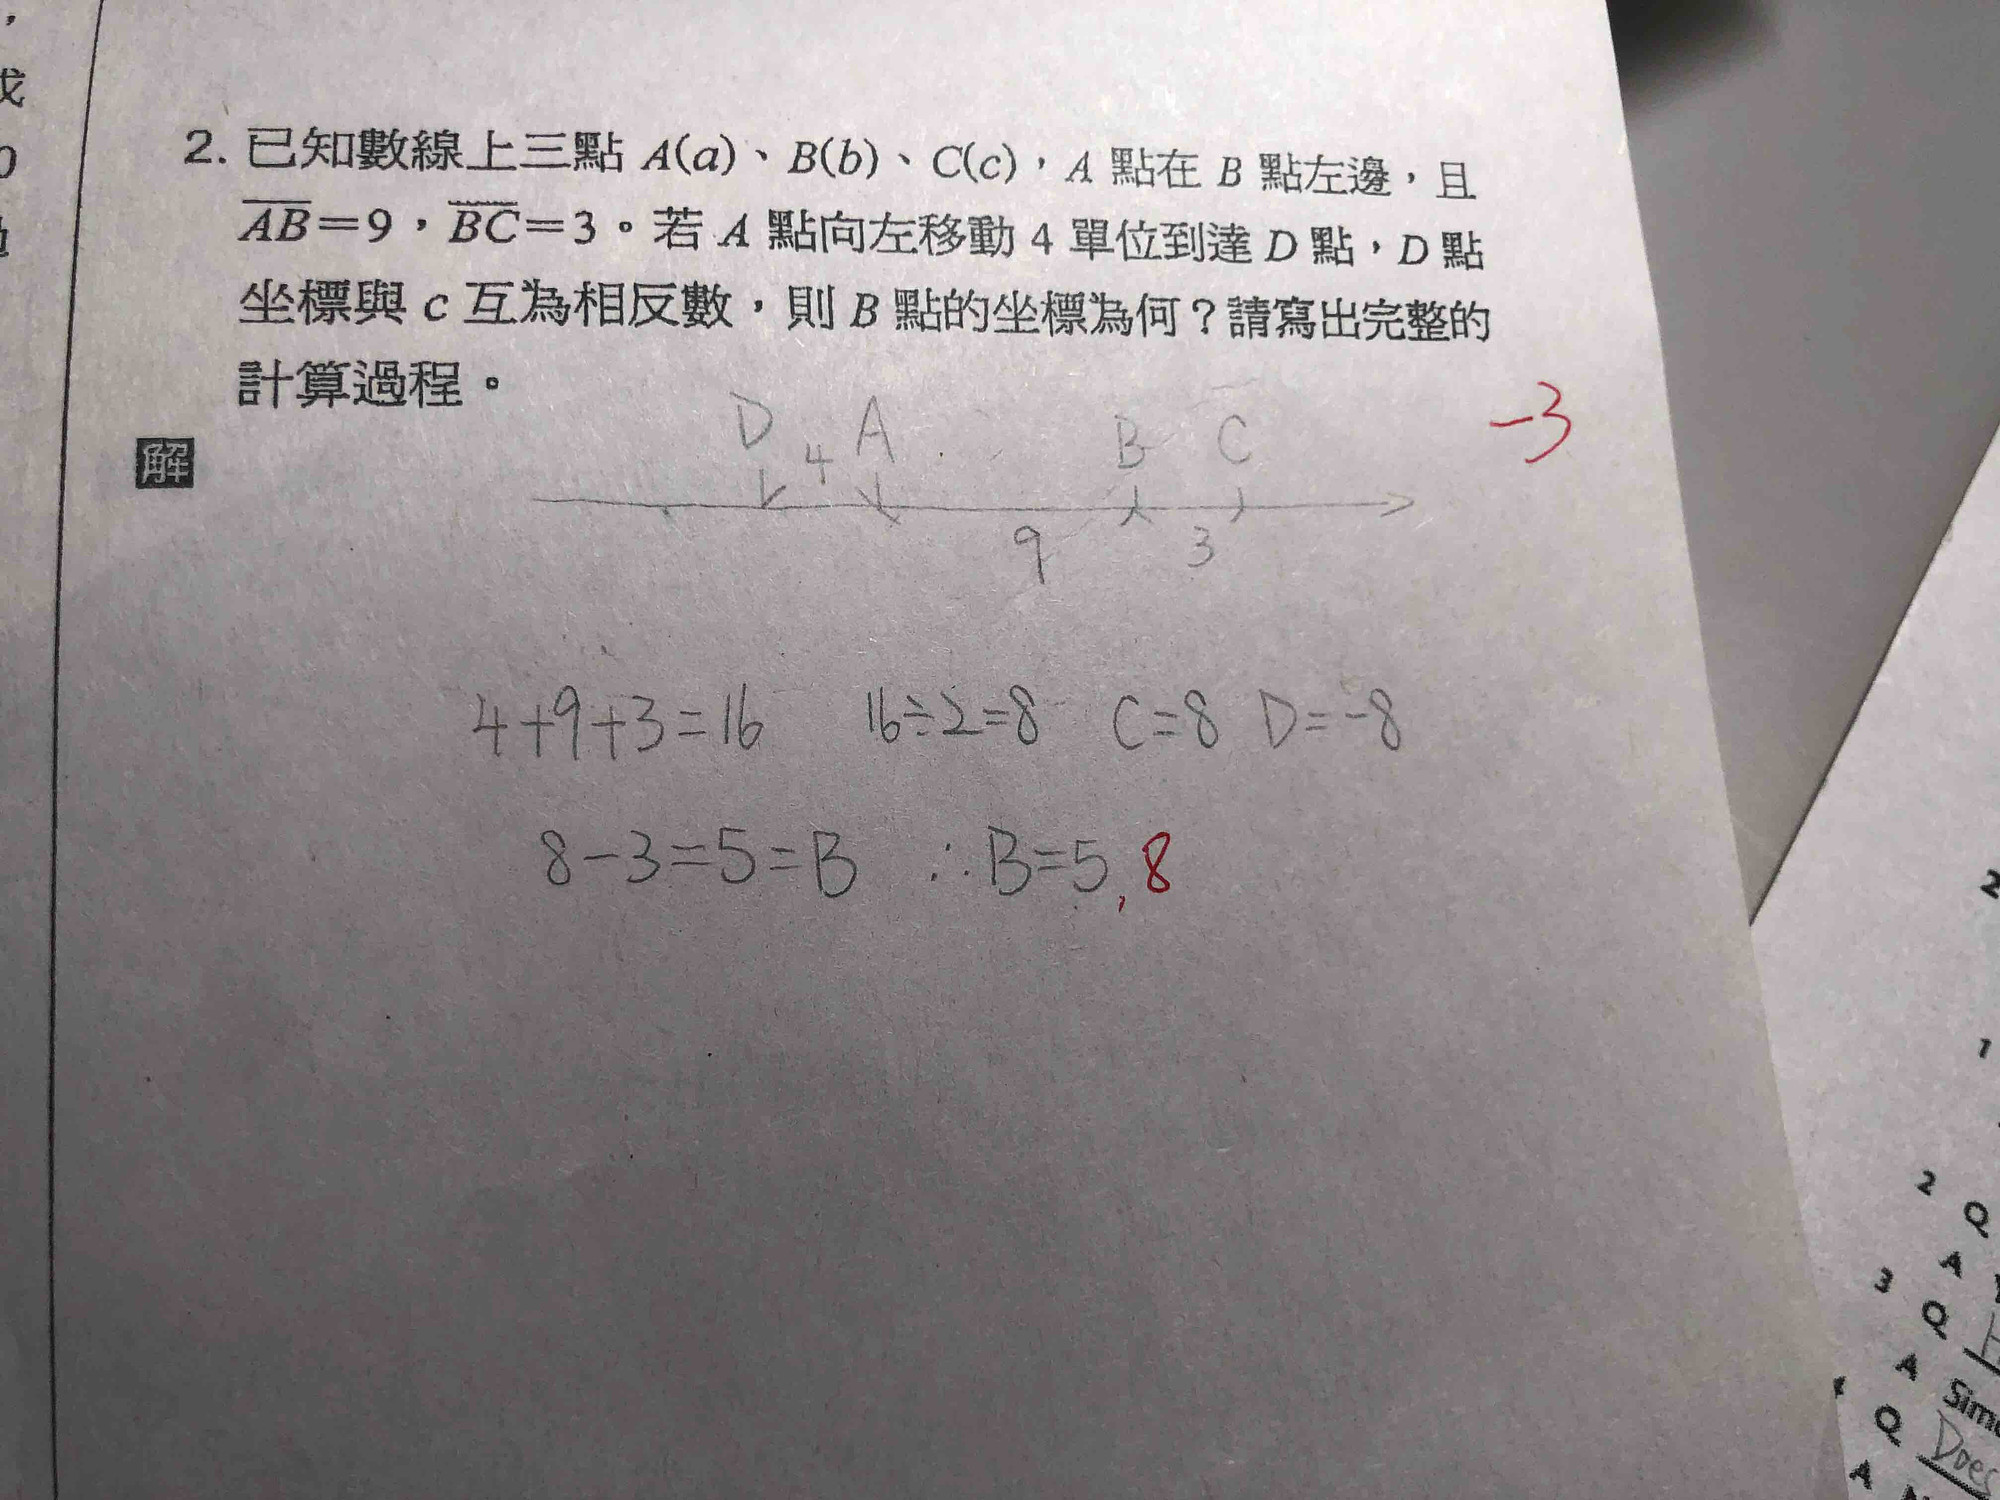 2. 已知數線上三點 A(a)、B(b)、C(c)，A 點在 B 點左邊，且
AB=9，BC=3。若 A 點向左移動 4 單位到達 D 點，D 點
坐標與 c 互為相反數，則 B 點的坐標為何？請寫出完整的
計算過程。
-3
解
D 4 A B C
9 3
4+9+3=16 16÷2=8 C=8 D=-8
8-3=5=B ∴B=5,8
2
1
2 Q
A
3 Q
A
Q
Does
A